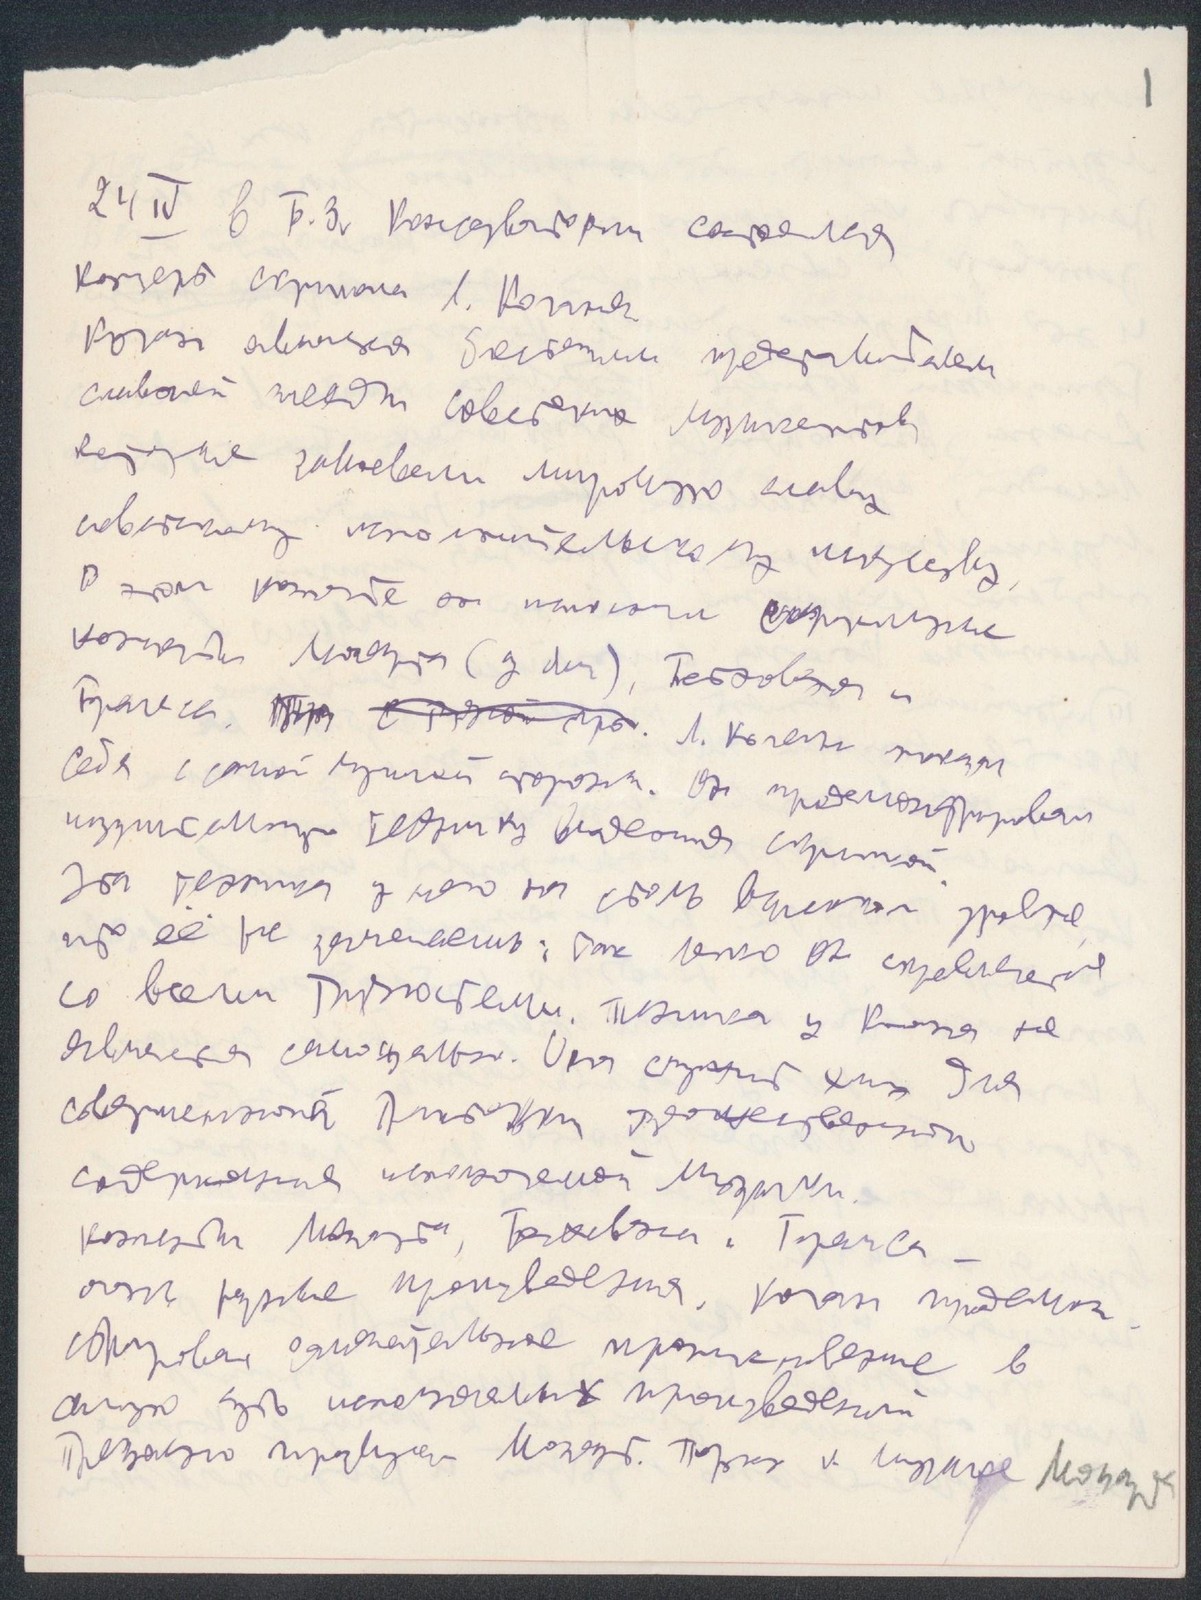 1
24 IV в Б.З. Консерватории состоялся
концерт скрипача Л. Когана
Коган является блестящим представителем
славной плеяды советских музыкантов
которые завоевали мировую славу
советскому исполнительскому искусству.
В этом концерте он исполнил скрипичные
концерты Моцарта (g dur), Бетховена и
Брамса. Л. Коган показал
себя с самой лучшей стороны. Он продемонстрировал
изумительную технику владения скрипкой.
Эта техника у него на столь высоком уровне,
что её не замечаешь: так легко он справляется
со всеми трудностями. Техника у Когана не
является самоцелью. Она служит ему для
совершенной
содержания исполняемой музыки.
концерты Моцарта, Бетховена и Брамса –
очень разные произведения. Коган продемон-
стрировал замечательное проникновение в
самую суть исполняемых произведений
Прекрасно прозвучал Моцарт. Подход к музыке Моцарта